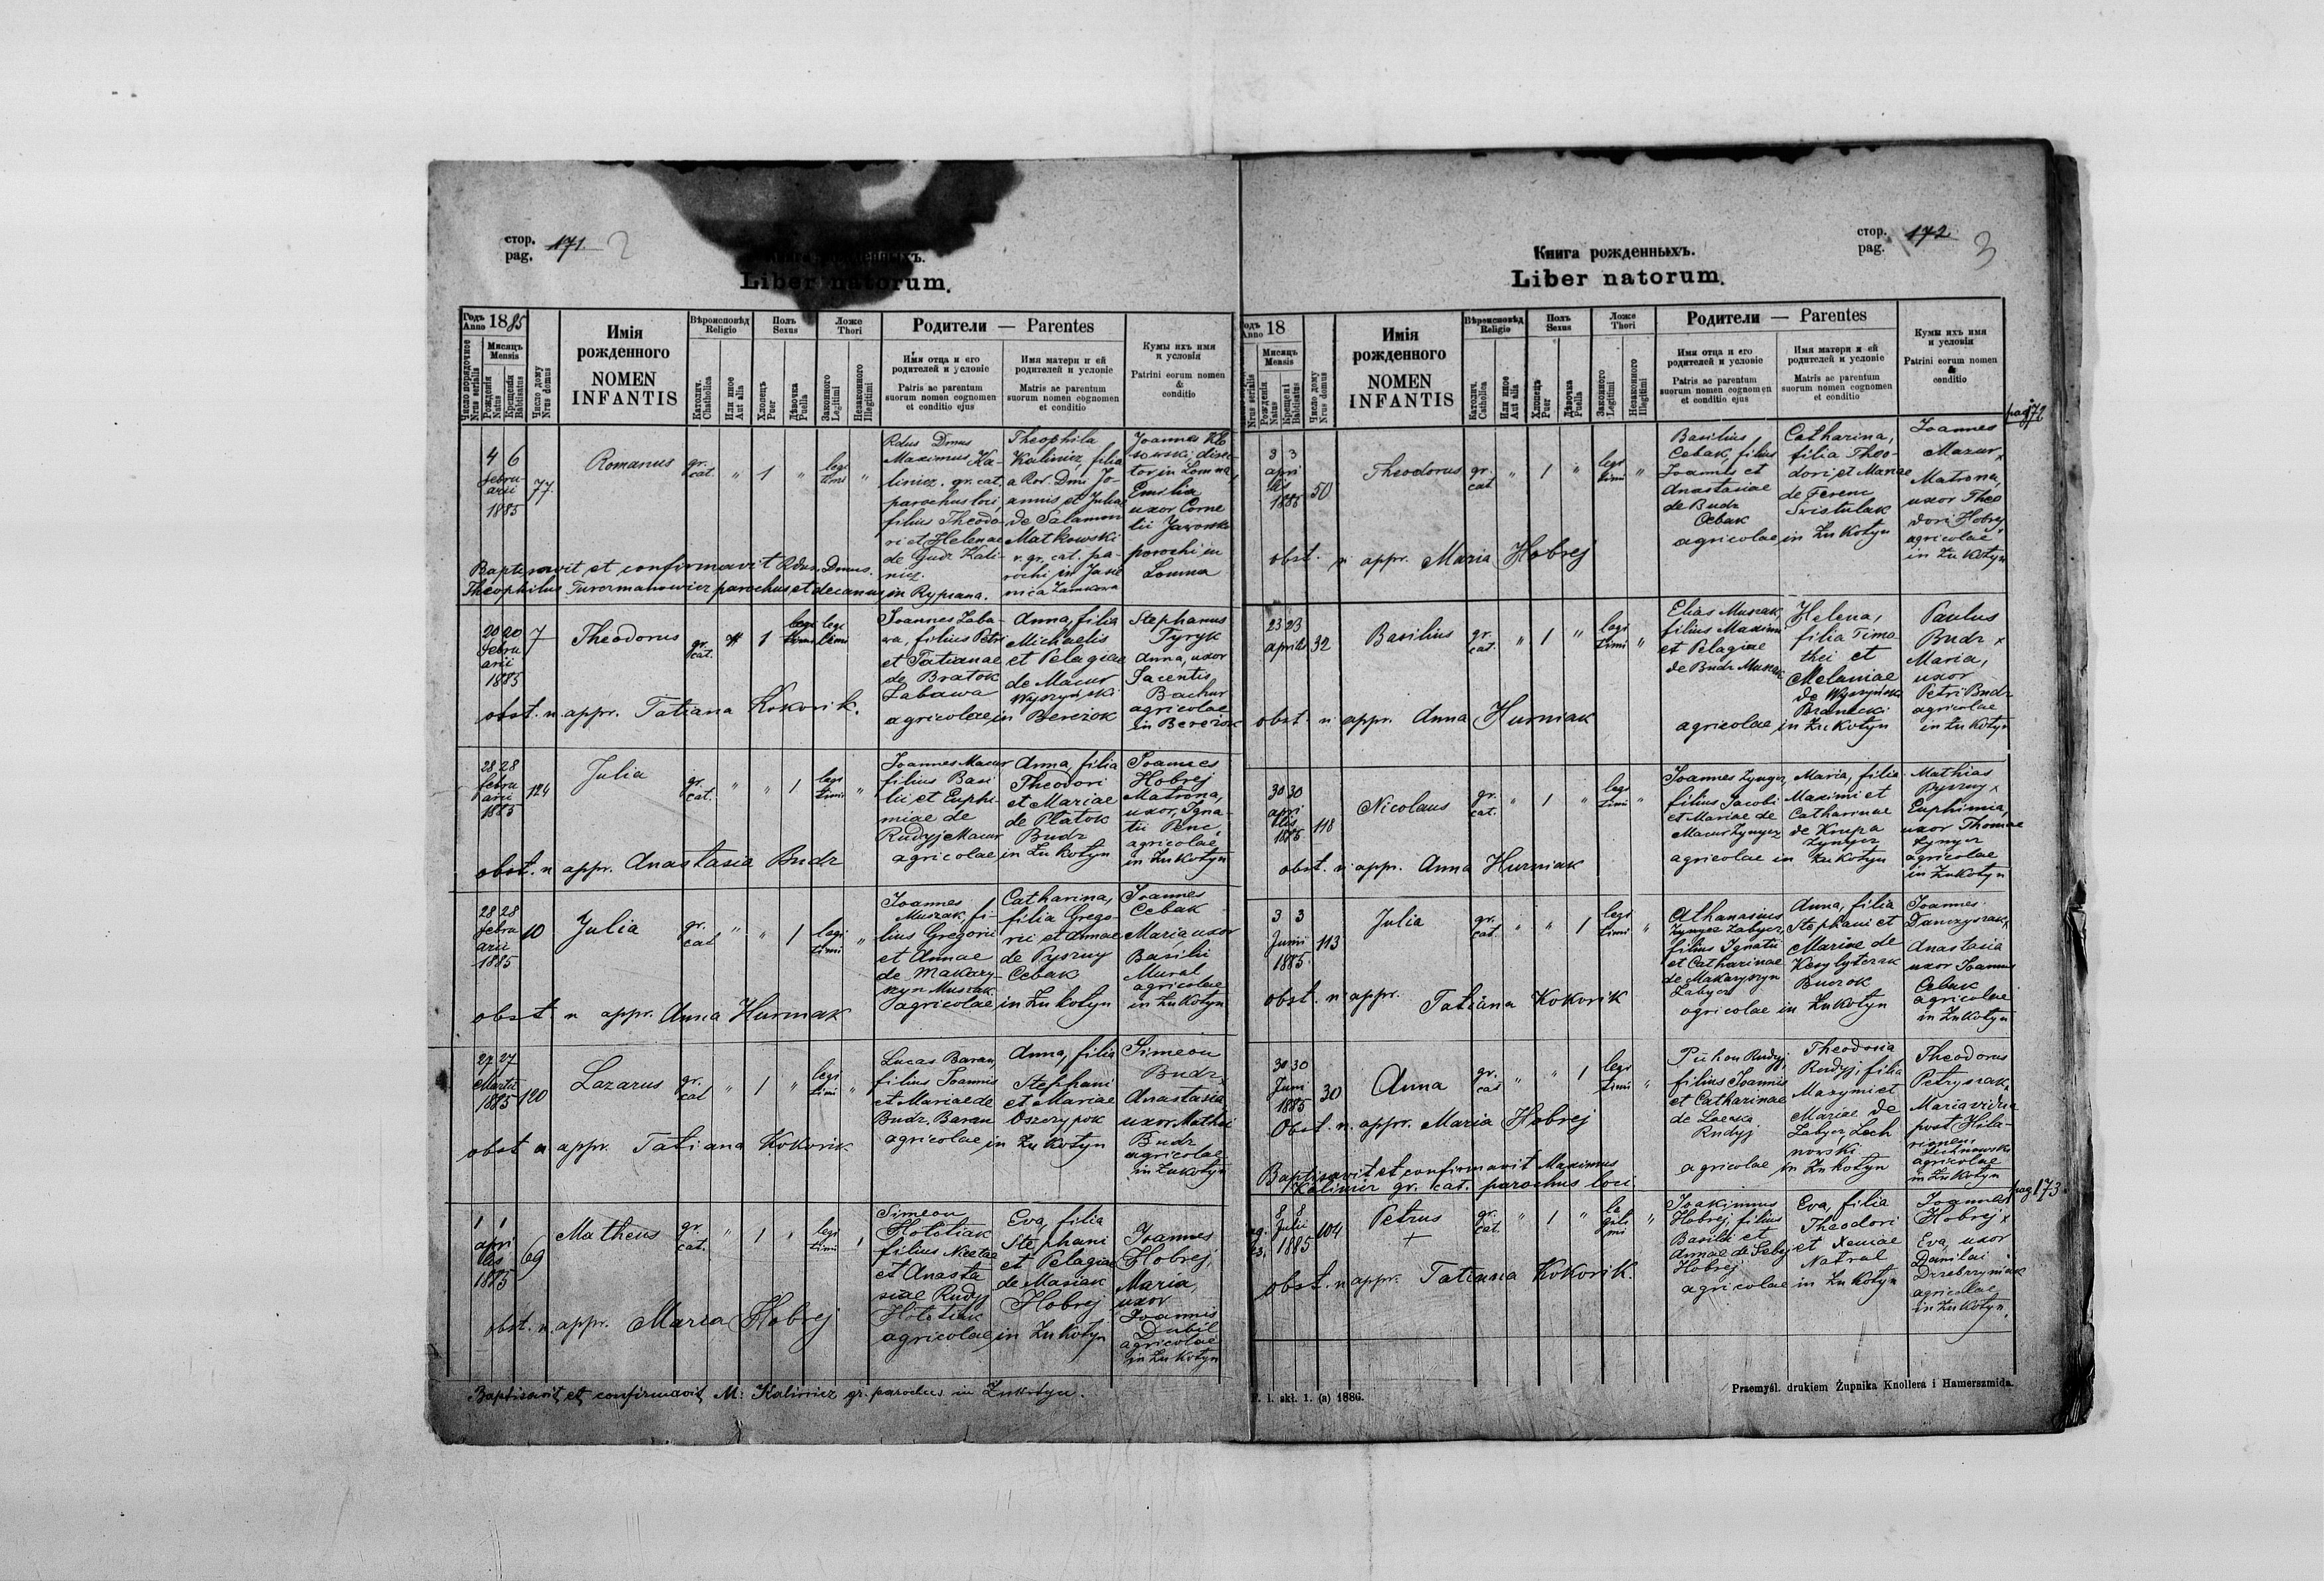 стор.
pag. 171. 2
Книга рожденныхъ.
Liber natorum.
Годъ Anno 1885
Число порядочное Nrus serialis
Мисяцъ Mensis
Рождения Natus
Крещения Babtisatus
Число дому Nrus domus
Имія рожденного
NOMEN INFANTIS
Вѣроисповѣд Religio
Католич. Chatholica
Или иное Aut alia
Полъ Sexus
Хлопецъ Puer
Дѣвочка Puella
Ложе Thori
Законного Legitimi
Незаконного Illegitimi
Родители — Parentes
Имя отца и его родителей и условіе
Patris ac parentum suorum nomen cognomen et conditio ejus
Имя матери и ей родителей и условіе
Matris ac parentum suorum nomen cognomen et conditio
Кумы ихъ имя и условія
Patrini eorum nomen & conditio
4 6 februarii 1885
77
Romanus
gr. cat. " 1 " legitimi "
Rdus Dmus Maximus Kalinicz. gr. cat. parochus loci, filius Theodori et Helenae de Gudz Kalinicz.
Theophila Kalinicz, filia a Rev. Dmi Joannis et Juliae de Salamon Matkowski r. gr. cat. parochi in Jasienica Zamkowa
Joannes director in Lomna, Emilia uxor Cornelii Jaworski parochi in Lomna
Baptisavit et confirmavit Rdus. Dmus. Theophilus Turczmanowicz parochus et decanus in Rypiana.
20 20 februarii 1885
7
Theodorus
gr. cat. " 1 legitimi legitimi
Joannes Zabawa, filius Petri et Tatianae de Bratok Zabawa
Anna, filia Michaelis et Pelagiae de Macur Wyszyński
agricolae in Bereżok
Stephanus Tyryk Anna, uxor Jacentis Bachur agricolae in Bereżok
obst. n. appr. Tatiana Kokorik.
28 28 februarii 1885
124
Julia
gr. cat. " " 1 legitimi "
Joannes Macur filius Basilii et Euphimiae de Rudyj Macur
Anna, filia Theodori et Mariae de Płatok Budz
agricolae in Żukotyn
Joannes Hobrej Matrona, uxor, Ignatii Penc, agricolae in Żukotyn
obst. n appr. Anastasia Budz
28 28 februarii 1885
10
Julia
gr. cat " " 1 legitimi "
Joannes Muszak, filius Gregorii et Annae de Makaryszyn Muszak
Catharina, filia Gregorii et Annae de Pyszny Cebak
agricolae in Żukotyn
Joannes Cebak Maria, uxor Basilii Mural agricolae in Żukotyn
obst. n appr. Anna Hurniak
27 27 Martii 1885
120
Lazarus
gr. cat " 1 " legitimi "
Lucas Baran, filius Joannis et Mariae de Budz, Baran
Anna, filia Stephani et Mariae Oszczypok
agricolae in Żukotyn
Simeon Budz, Anastasia uxor Mathei Budz agricolae in Żukotyn
obst n appr. Tatiana Kokorik
1 1 aprilis 1885
69
Matheus
gr. cat. " 1 " legitimi
Simeon Hołotiak filius Nicetae et Anastasiae Rudyj Hołotiak
Eva, filia Stephani et Pelagiae de Masiak Hobrej
agricolae in Żukotyn
Joannes Hobrej, Maria, uxor Joannis Dubil agricolae in Żukotyn
obst. n. appr. Maria Hobrej
Baptisavit et confirmavit M: Kalinicz gr. parochus in Żukotyn.
стор.
pag. 172 3
Книга рожденныхъ.
Liber natorum.
Годъ Anno 18
Nrus serialis
Мисяцъ Mensis
Рождения Natus
Крещені Babtisatus
Число дому Nrus domus
Имія рожденного
NOMEN INFANTIS
Вѣроисповѣд Religio
Католич. Catholica
Или иное Aut alia
Полъ Sexus
Хлопецъ Puer
Дѣвочка Puella
Ложе Thori
Законного Legitimi
Незаконного Illegitimi
Родители — Parentes
Имя отца и его родителей и условіе
Patris ac parentum suorum nomen cognomen et conditio ejus
Имя матери и ей родителей и условіе
Matris ac parentum suorum nomen cognomen et conditio
Кумы ихъ имя и условія
Patrini eorum nomen & conditio
pag 172
3 3 aprilis 1885
50
Theodorus
gr. cat " 1 " legitimi "
Basilius Cebak, filius Joannis et Anastasiae de Budz Cebak
Catharina, filia Theodori et Mariae de Ferenc Svistulak
agricolae in Żukotyn
Joannes Mazur, Matrona, uxor Theodori Hobrej, agricolae in Żukotyn
obst. n appr. Maria Hobrej
23 23 aprilis
32
Basilius
gr. cat. " 1 " legitimi "
Elias Muszak, filius Maximi et Pelagiae de Budz Muszak
Helena, filia Timothei et Melaniae de Wyszyński Branecki
agricolae in Żukotyn
Paulus Budz x Maria, uxor Petri Budz agricolae in Żukotyn
obst. n appr. Anna Hurniak
30 30 aprilis 1885
118
Nicolaus
gr. cat. " 1 " legitimi "
Joannes Zyngez, filius Jacobi et Mariae de Macur Zyngez
Maria, filia Maximi et Catharinae de Krupa Zyngez
agricolae in Żukotyn
Mathias Pyszny x Euphimia, uxor Thomae Zyngez agricolae in Żukotyn
obst. n appr. Anna Hurniak
3 3 Junii 1885
113
Julia
gr. cat. " " 1 legitimi "
Athanasius Zyngez Zabycz, filius Ignatii et Catharinae de Makaryszyn Zabycz
Anna, filia Stephani et Mariae de Buczok
agricolae in Żukotyn
Joannes Danczyszak, Anastasia uxor Joannis Cebak agricolae in Żukotyn
obst. n appr. Tatiana Kokorik
30 30 Juni 1885
30
Anna
gr. cat " " 1 legitimi "
Rudyj, filius Joannis et Catharinae de Rudyj
Theodosia Rudyj, filia Maxymi et Mariae de Zabycz, Lechnowski
agricolae in Żukotyn
Theodorus Petryszak, Maria vidua post Hilarionem, Lechnowski agricolae in Żukotyn
Obst. n. appr. Maria Hobrej
Baptisavit et confirmavit Maximus Kalinicz gr. cat. parochus loci.
pag 173
8 8 Julii 1885
104
Petrus +
gr. cat " 1 " legitimi "
Joakimus Hobrej, filius Basilii et Annae de Hobrej
Eva, filia Theodori et Xeniae Natral
agricolae in Żukotyn
Joannes Hobrej x Eva, uxor Danilai Drzebrzyniak agricolae in Żukotyn.
obst. n appr. Tatiana Kokorik.
P. i. skł. 1. (a) 1886.
Przemyśl. drukiem Żupnika Knollera i Hamerszmida.